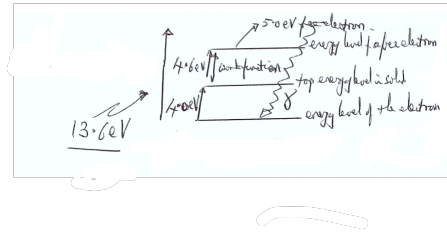 5.0eV free electron
energy level of a free electron
4.6eV workfunction
top energy level in solid
4.0eV γ
energy level of the electron
13.6eV